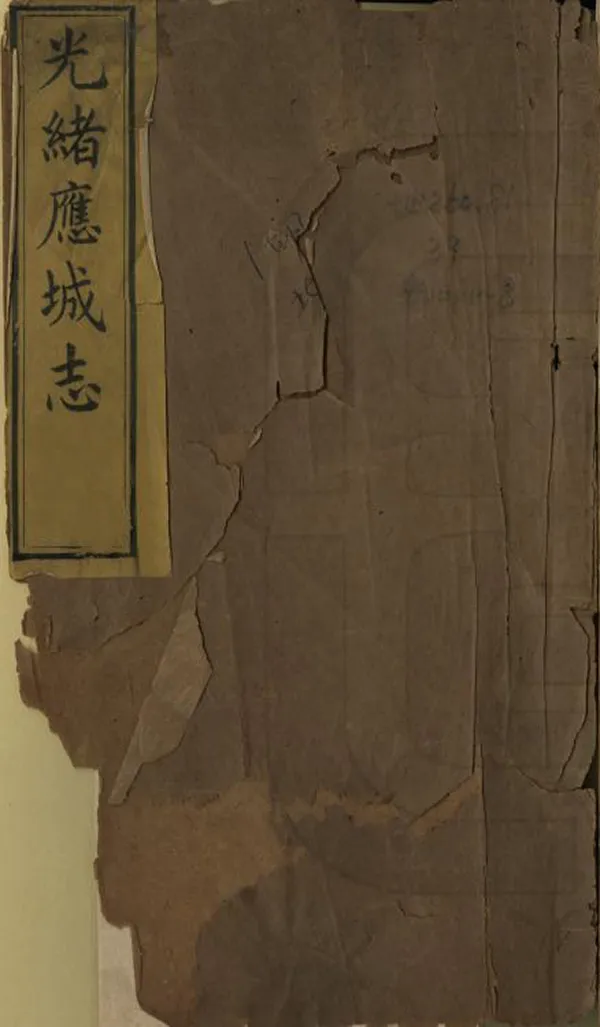 光緒應城志